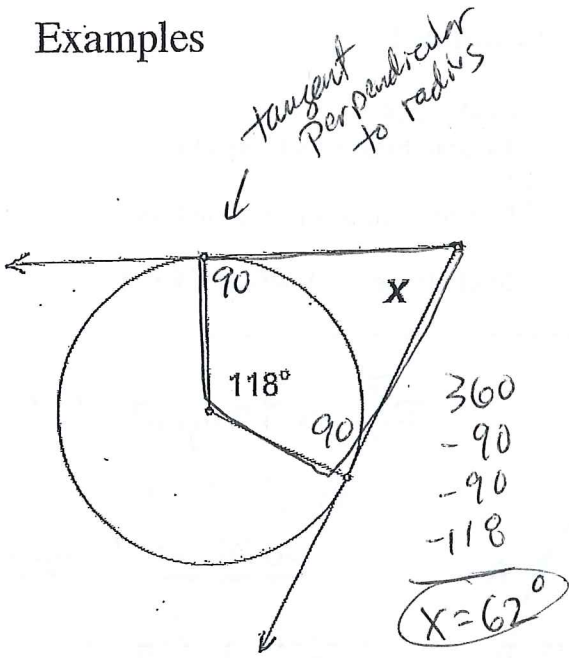 Examples
tangent
Perpendicular
to radius
90
X
118°
90
360
-90
-90
-118
X=62°